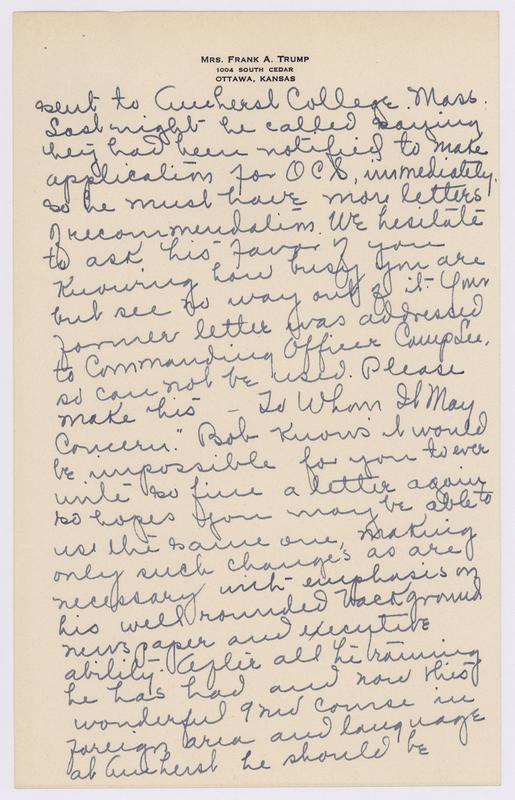 MRS. FRANK A. TRUMP
1004 SOUTH CEDAR
OTTAWA, KANSAS
sent to Amherst College. Mass.
Last night he called saying
they had been notified to make
application for OCS, immediately,
so he must have more letters
of recommendation. We hesitate
to ask this favor of you
Knowing how busy you are
but see no way out of it. Your
former letter was addressed
to Commanding Officer Camp Lee,
so can not be used. Please
make this - To Whom It May
Concern." Bob Knows it would
be impossible for you to ever
write so fine a letter again
so hopes you may be able to
use the same one, making
only such changes as are
necessary with emphasis on
his well rounded background
newspaper and executive
ability. After all the training
he has had and now this
wonderful 9 mo course in
foreign area and language
at Amherst he should be